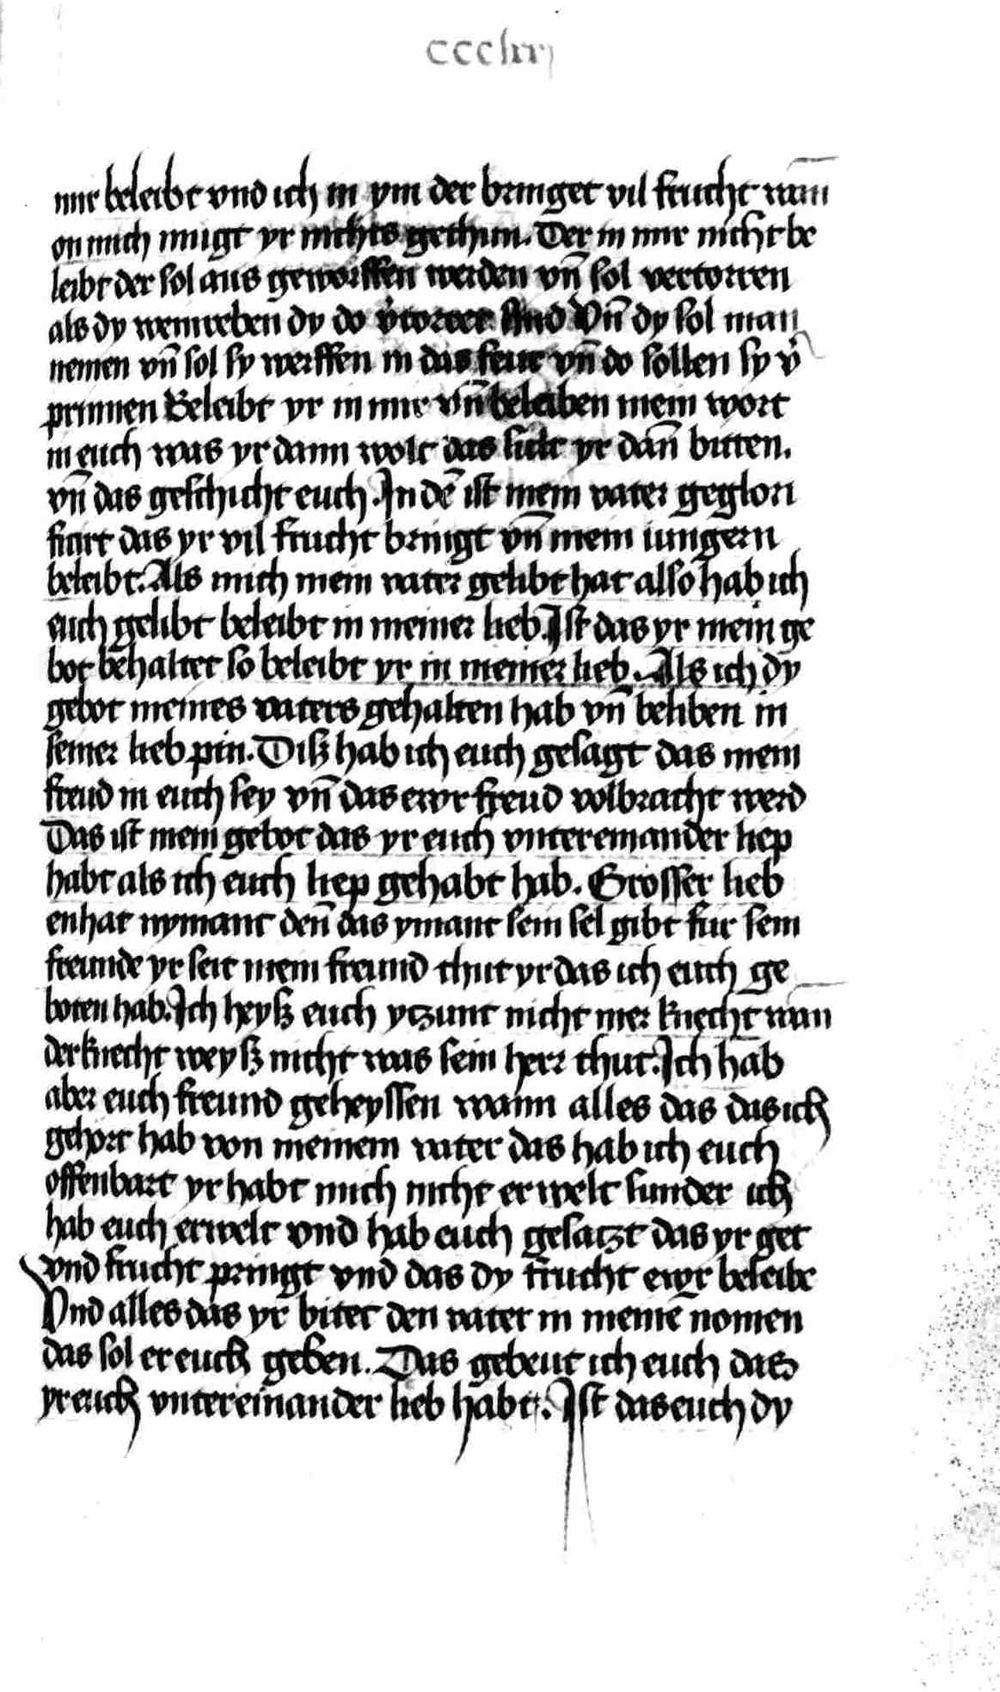 ccclxx
mir beleibt vnd ich in ym der bringet vil frucht wan̅
on mich mugt yr nichts gethun. Der in mir nicht be
leibt der sol aus geworffen werden vn̅ sol vertorren
als dy weinreben dy do v̓torret sind Vn̅ dy sol man
nemen vn̅ sol sy werffen in das feur vn̅ do sollen sy v̓
prinnen Beleibt yr in mir vn̅ beleiben mein wort
in euch was yr dann wolt das sult yr dan̅ bitten.
vn̅ das geschicht euch. In de̅ ist mein vater geglori
ficirt das yr vil frucht bringt vn̅ mein iungern
beleibt. Als mich mein vater gelibt hat also hab ich
euch gelibt beleibt in meiner lieb. Ist das yr mein ge
bot behaltet so beleibt yr in meiner lieb. Als ich dy
gebot meines vaters gehalten hab vn̅ beliben in
seiner lieb pin. Diß hab ich euch gesagt das mein
freud in euch sey vn̅ das ewr freud volbracht werd
Das ist mein gebot das yr euch vntereinander liep
habt als ich euch liep gehabt hab. Grosser lieb
enhat nymant den̅ das ymant sein sel gibt fur sein
freunde yr seit mein freund thut yr das ich euch ge
boten hab. Ich heyß euch ytzunt nicht mer knecht wan̅
der knecht weyß nicht was sein herr thut. Ich hab
aber euch freund geheyssen wann alles das das ich
gehort hab von meinem vater das hab ich euch
offenbart yr habt mich nicht erwelt sunder ich
hab euch erwelt vnd hab euch gesatzt das yr get
vnd frucht pringt vnd das dy frucht ewr beleibe
Vnd alles das yr bitet den vater in meine̅ nomen
das sol er euch geben. Das gebeut ich euch das
yr euch vntereinander lieb habt. Ist das euch dy